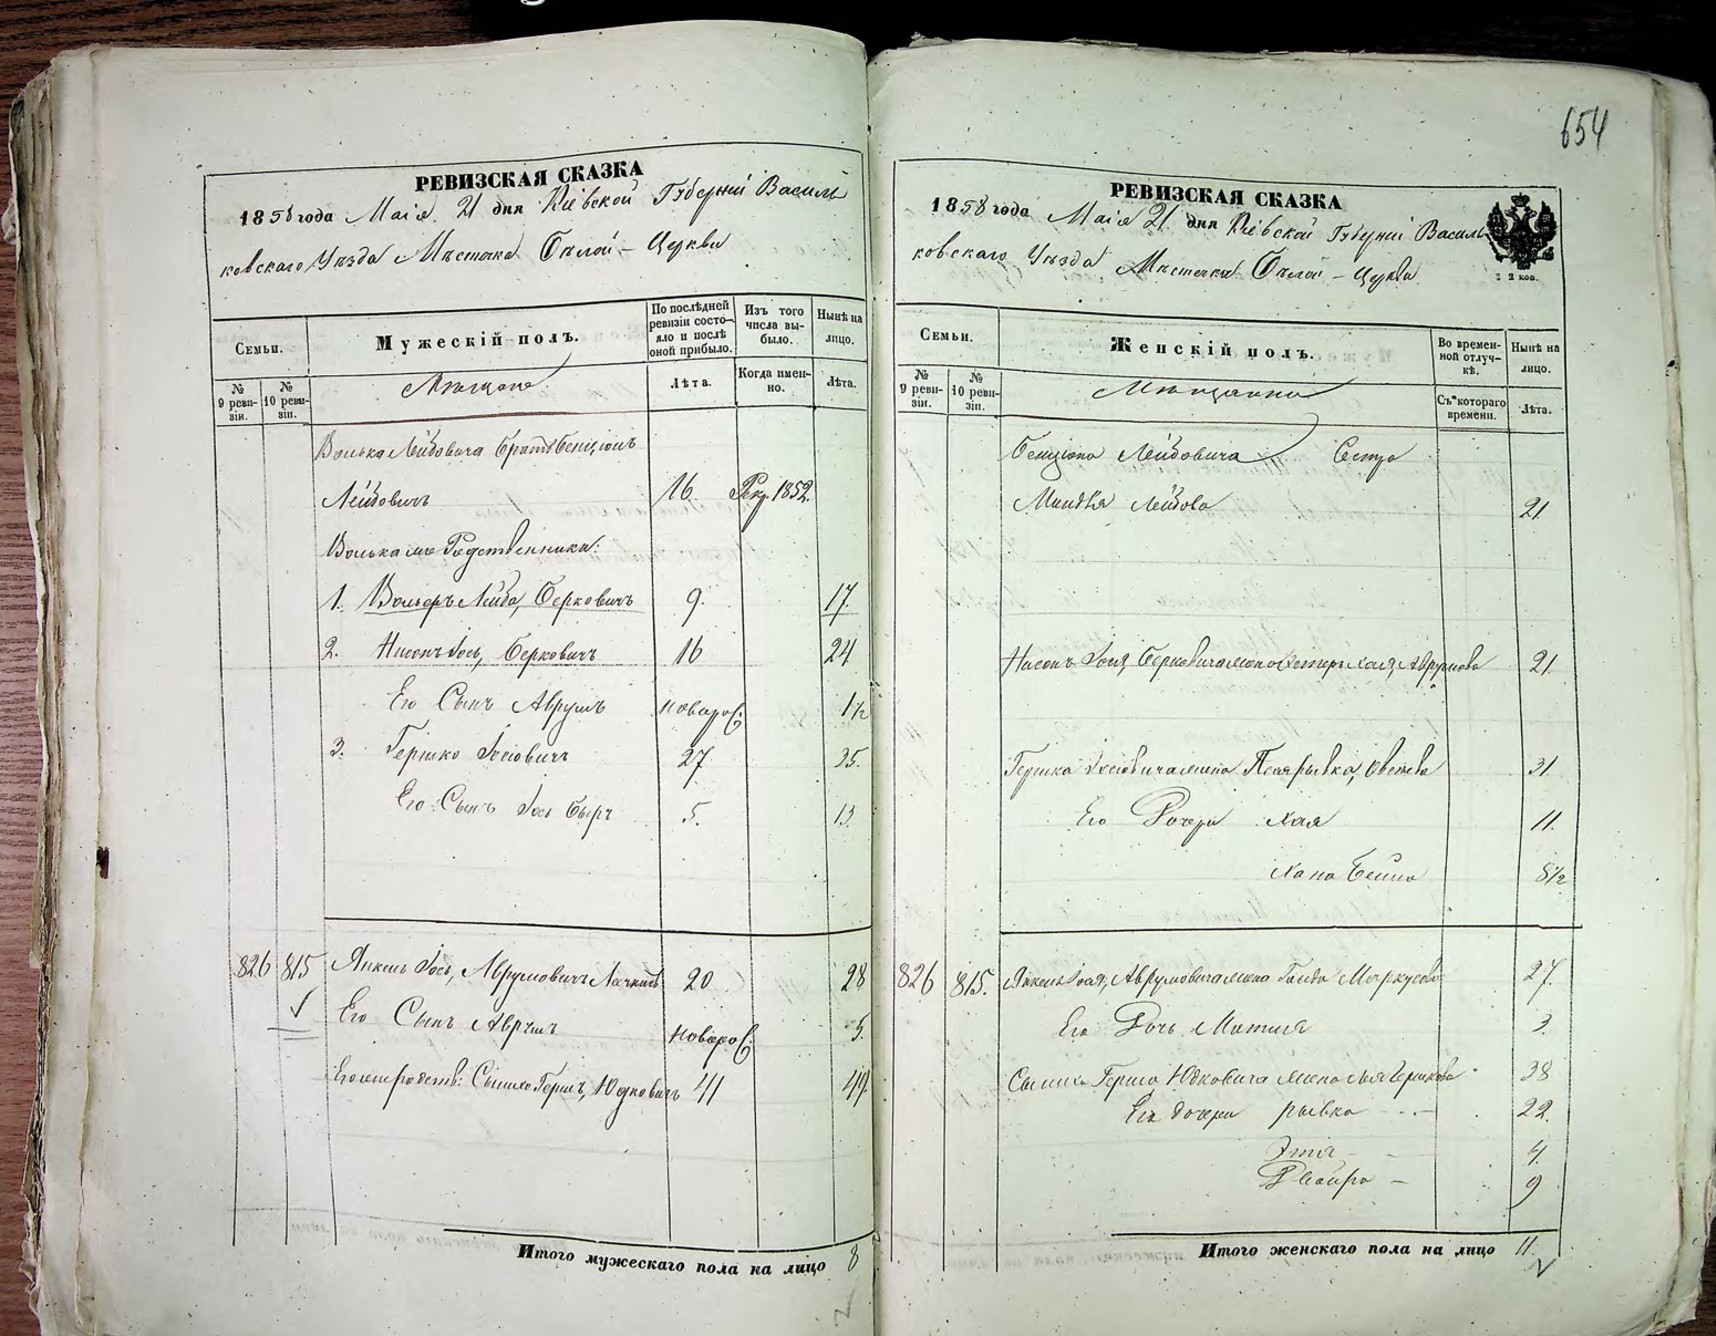 654
РЕВИЗСКАЯ СКАЗКА
1858 года Маія 21 дня Кіевской Губерніи Василь
ковскаго Уѣзда Мѣстечка Бѣлой – Церкви
Семьи.
Мужескій полъ.
По послѣдней ревизіи состо- яло и послѣ оной прибыло.
Изъ того числа вы- было.
Нынѣ на лицо.
№ 9 реви- зіи.
№ 10 реви- зіи.
Мѣщане
Лѣта.
Когда имен- но.
Лѣта.
Волька Лейбовича братъ Бенціонъ
Лейбовичъ 16 Рекр. 1852.
Волька же Родственники:
1. Вольеръ Лейба, Берковичъ 9. 17.
2. Нисонъ Іось, Берковичъ 16 24
Его Сынъ Аврумъ новорож: 1 1/2
3. Гершко Іосіовичъ 27 35.
Его Сынъ Іось Беръ 5. 13.
826 815 Янкель Іось, Аврумовичъ 20 28
Его Сынъ Аврумъ новорож: 5.
Гершъ, Юдковичъ 41 49
Итого мужескаго пола на лицо 8
РЕВИЗСКАЯ СКАЗКА
1858 года Маія 21 дня Кіевской Губерніи Василь
ковскаго Уѣзда Мѣстечка Бѣлой – Церкви
2 коп.
Семьи.
Женскій полъ.
Во времен- ной отлуч- кѣ.
Нынѣ на лицо.
№ 9 реви- зіи.
№ 10 реви- зіи.
Мѣщанки
Съ котораго времени.
Лѣта.
Бенціона Лейбовича Сестра
Миндля Лейбова 21
Нисонъ Іося, Берковича жена Эстеръ Хая, Аврумова 21.
Гершка Іосіовича жена Рывка, 31.
Его Дочери Хая 11.
Хана Бейла 8 1/2
826 815. Янкель Іося, Аврумовича жена Голда Маркусова 27.
Его Дочь 3.
Герша Юдковича жена Гершкова 38
Его дочери рывка – – 22.
Этя – 4.
Двойра – 9
Итого женскаго пола на лицо 11.